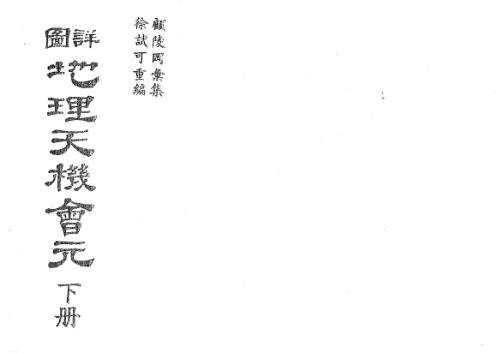 顧陵岡彙集
徐試可重編
詳圖
地理天機會元
下册